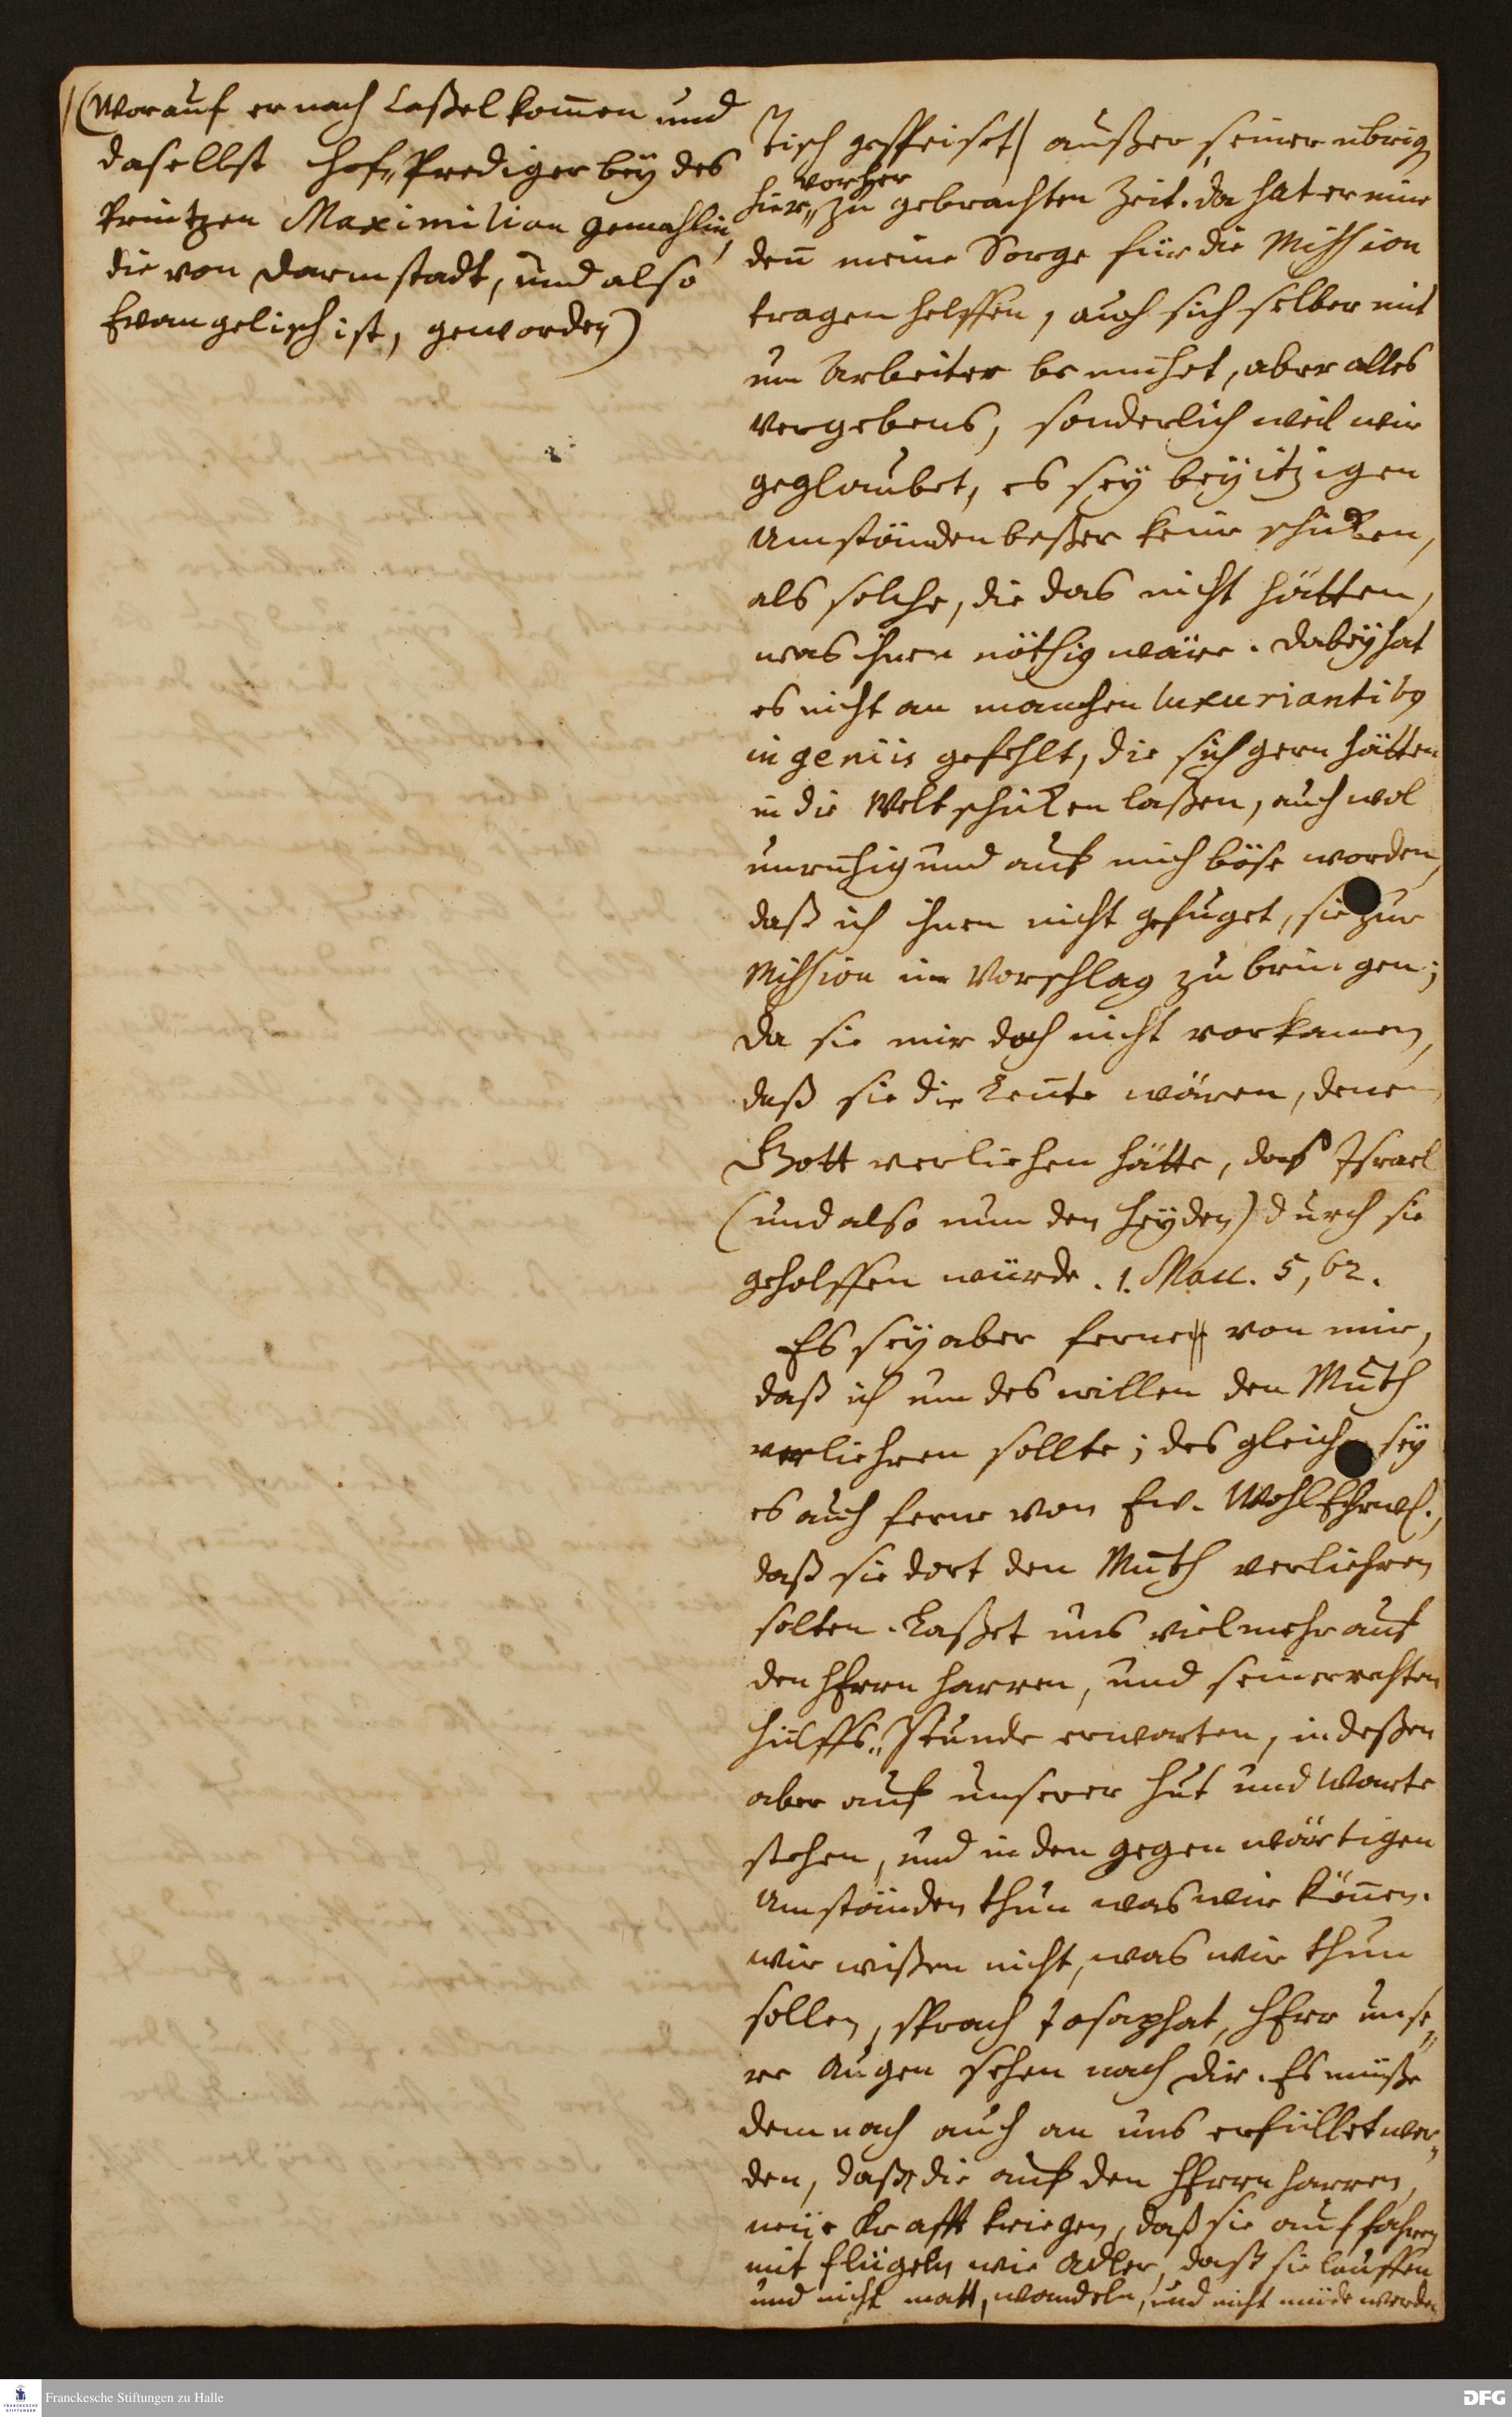 /(Worauf er nach Caßel kom̄en und
daselbst Hof„Prediger bey des
Printzen Maximilian Gemahlin,
die von Darmstadt, und also
Evangelisch ist, geworden)
Tisch gespeiset/ außer seiner übrig
vorher
hier„ zu gebrachten Zeit. Da hat er nun
den̄ meine Sorge für die Mission
tragen helffen, auch sich selber mit
um Arbeiter bemühet, aber alles
vergebens, sonderlich weil wir
geglaubet, es sey bey itzigen
Umständen beßer keine schicken,
als solche, die das nicht hätten,
was ihnen nöthig wäre. Dabey hat
es nicht an manchen luxuriantibq
ingeniis gefehlt, die sich gern hätten
in die Welt schicken laßen, auch wol
unruhig und auf mich böse worden,
daß ich ihnen nicht gefüget, sie zur
Mission im Vorschlag zu bringen;
da sie mir doch nicht vorkamen,
daß sie die Leute wären, denen
Gott verliehen hätte, daß Israel
(und also nun den Heyden) durch sie
geholffen würde. 1. Macc. 5, 62.
Es sey aber ferne von mir,
daß ich um des willen den Muth
verliehren sollte; des gleichen sey
es auch ferne von Ew. WohlEhrw.,
daß sie dort den Muth verliehren
solten. Laßet uns vielmehr auf
den HErrn harren, und seiner rechten
Hülffs„Stunde erwarten, indeßen
aber auf unserer Hut und Warte
stehen, und in den gegenwärtigen
Umständen thun was wir kön̄en.
Wir wißen nicht, was wir thun
sollen, sprach Josaphat, HErr unse„
re Augen sehen nach dir. Es müße
demnach auch an uns erfüllet wer„
den, daß die auf den HErrn harren,
neue Krafft kriegen, daß sie auffahren
mit Flügeln wie Adler, daß sie lauffen
und nicht matt, wandeln, und nicht müde werden
Franckesche Stiftungen zu Halle
FRANCKESCHE STIFTUNGEN
DFG